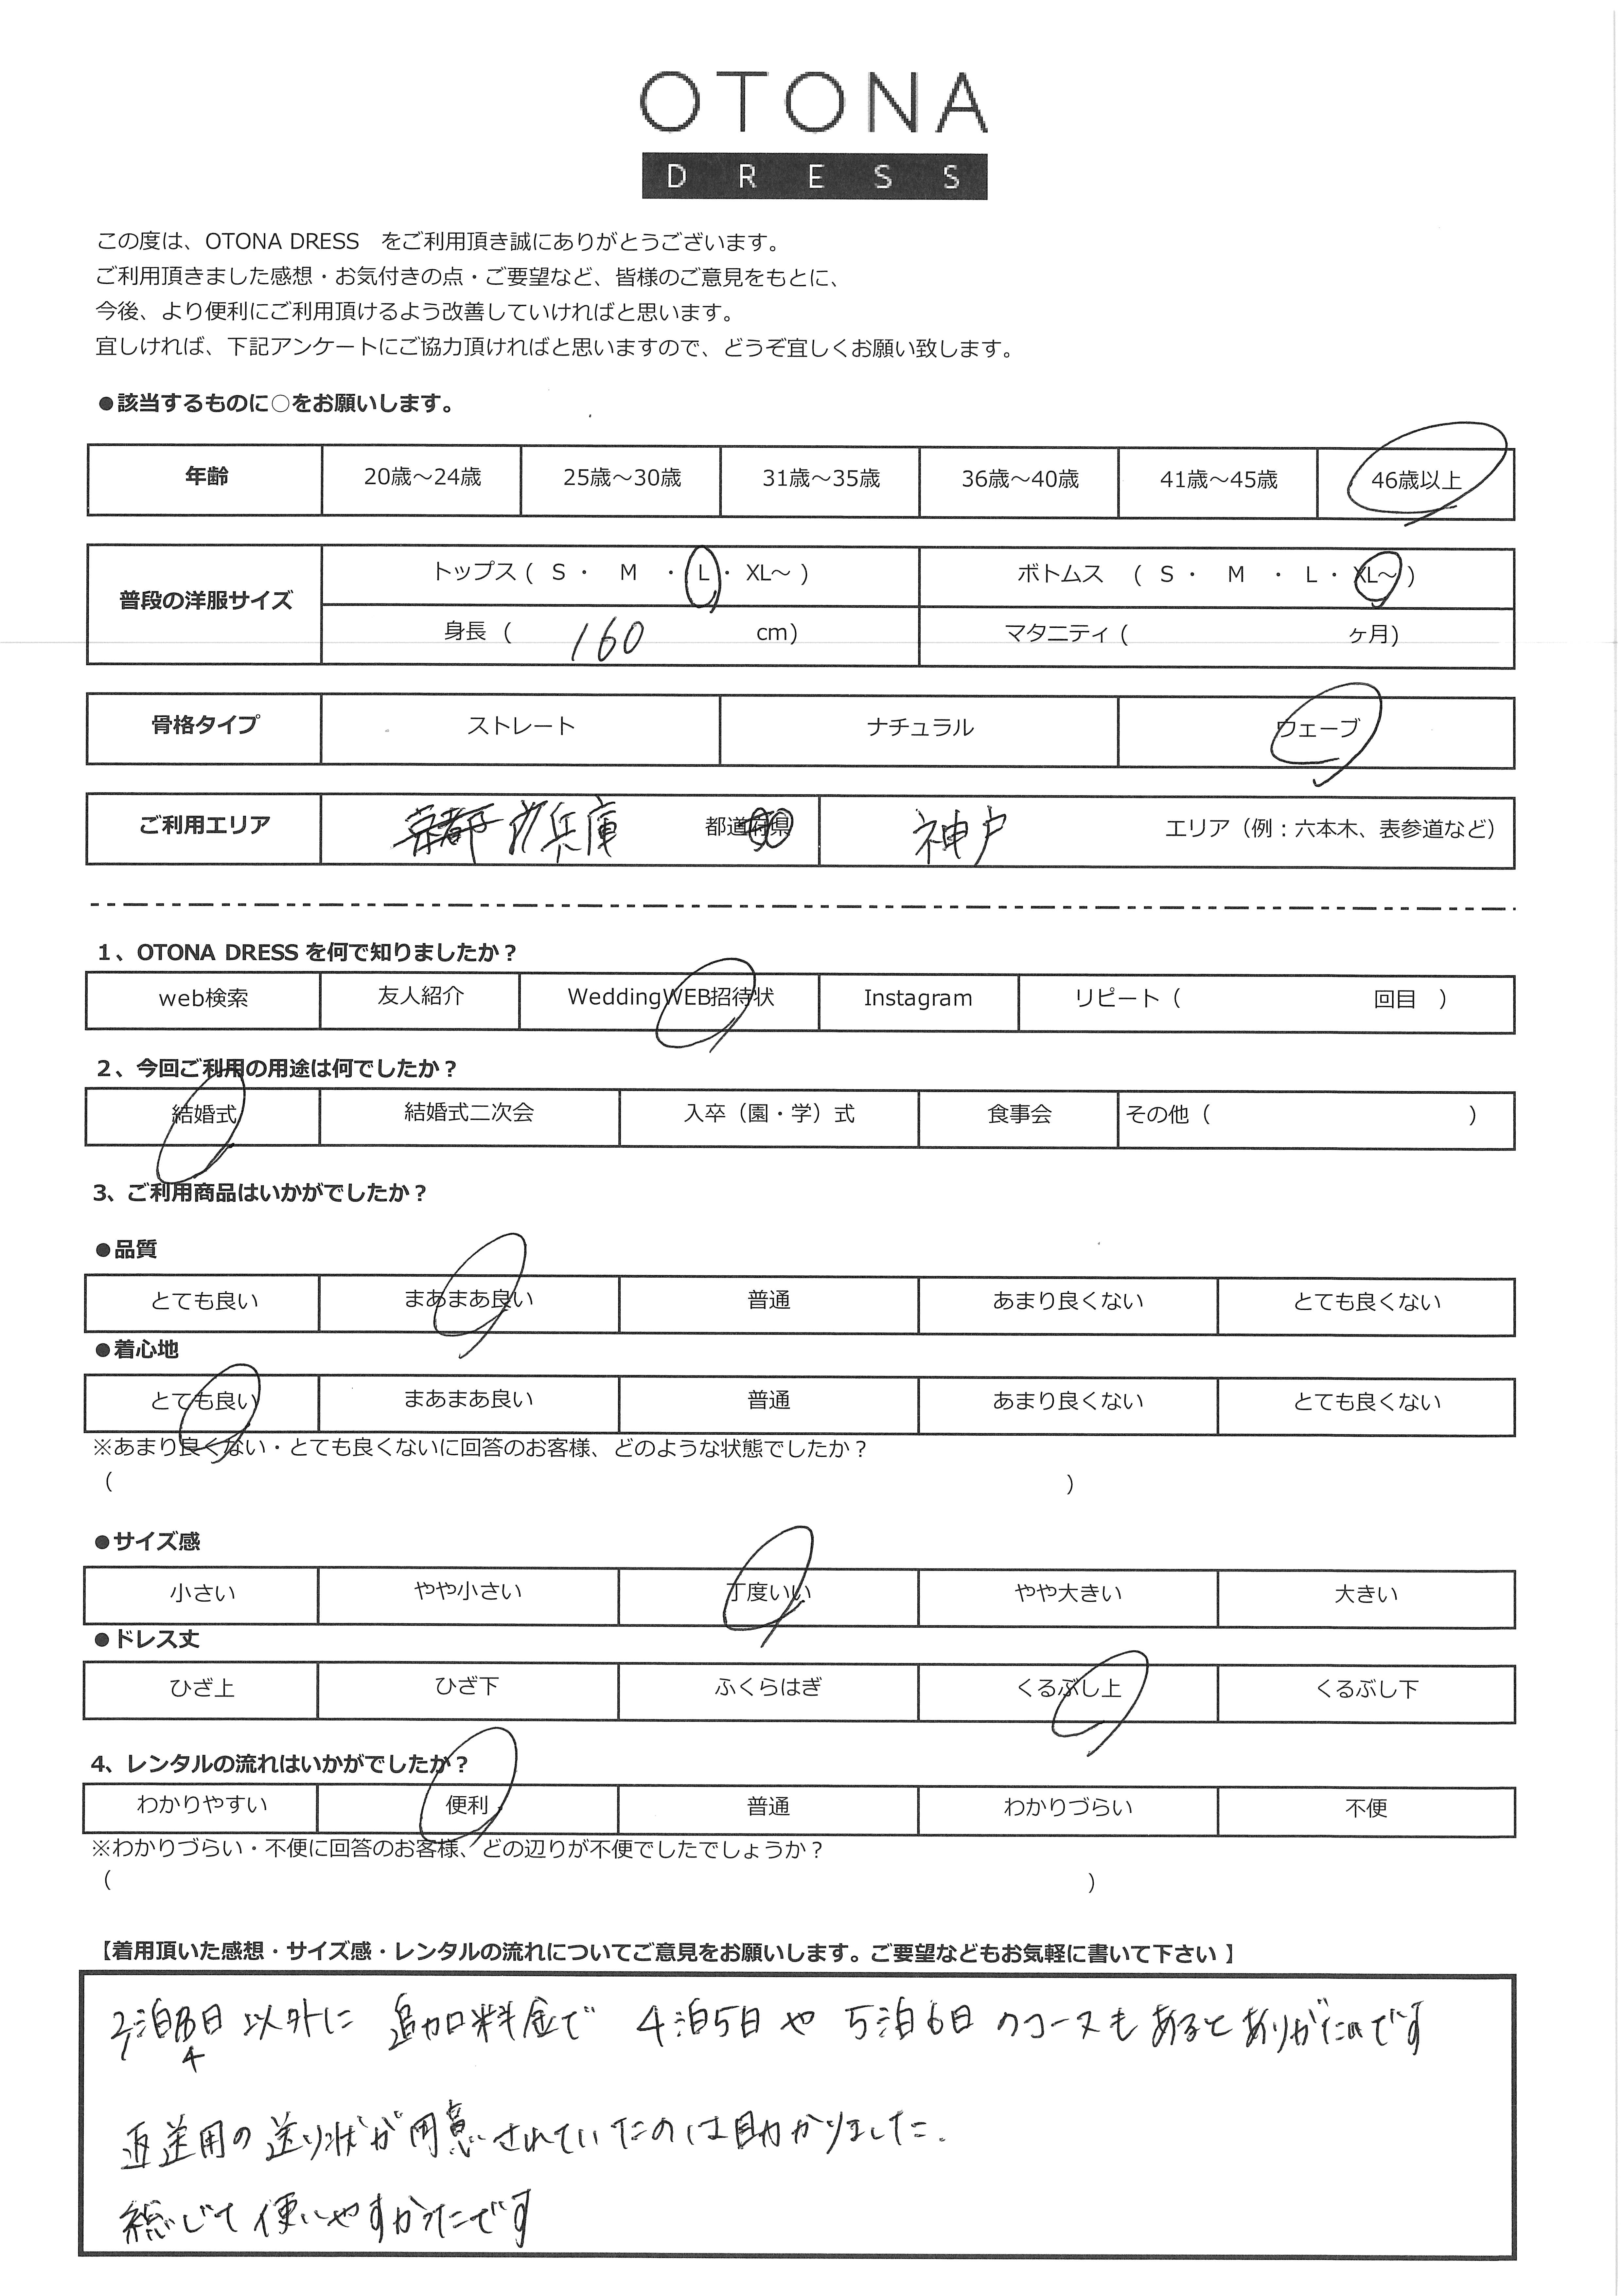 OTONA
DRESS
この度は、OTONA DRESS をご利用頂き誠にありがとうございます。
ご利用頂きました感想・お気付きの点・ご要望など、皆様のご意見をもとに、
今後、より便利にご利用頂けるよう改善していければと思います。
宜しければ、下記アンケートにご協力頂ければと思いますので、どうぞ宜しくお願い致します。
●該当するものに○をお願いします。
年齢 20歳～24歳 25歳～30歳 31歳～35歳 36歳～40歳 41歳～45歳 46歳以上
普段の洋服サイズ トップス ( S ・ M ・ L ・ XL～ ) ボトムス ( S ・ M ・ L ・ XL～ )
身長 ( 160 cm) マタニティ ( ヶ月)
骨格タイプ ストレート ナチュラル ウェーブ
ご利用エリア 兵庫 都道府県 神戸 エリア（例：六本木、表参道など）
1、OTONA DRESS を何で知りましたか？
web検索 友人紹介 WeddingWEB招待状 Instagram リピート（ 回目 ）
2、今回ご利用の用途は何でしたか？
結婚式 結婚式二次会 入卒（園・学）式 食事会 その他（ ）
3、ご利用商品はいかがでしたか？
●品質
とても良い まあまあ良い 普通 あまり良くない とても良くない
●着心地
とても良い まあまあ良い 普通 あまり良くない とても良くない
※あまり良くない・とても良くないに回答のお客様、どのような状態でしたか？
（ ）
●サイズ感
小さい やや小さい 丁度いい やや大きい 大きい
●ドレス丈
ひざ上 ひざ下 ふくらはぎ くるぶし上 くるぶし下
4、レンタルの流れはいかがでしたか？
わかりやすい 便利 普通 わかりづらい 不便
※わかりづらい・不便に回答のお客様、どの辺りが不便でしたでしょうか？
（ ）
【着用頂いた感想・サイズ感・レンタルの流れについてご意見をお願いします。ご要望などもお気軽に書いて下さい 】
泊4日 以外に 追加料金で 4泊5日 や 5泊6日 のコースも あると ありがたいです
返送用の 送り状が 用意されていたのは 助かりました.
総じて 使いやすかったです